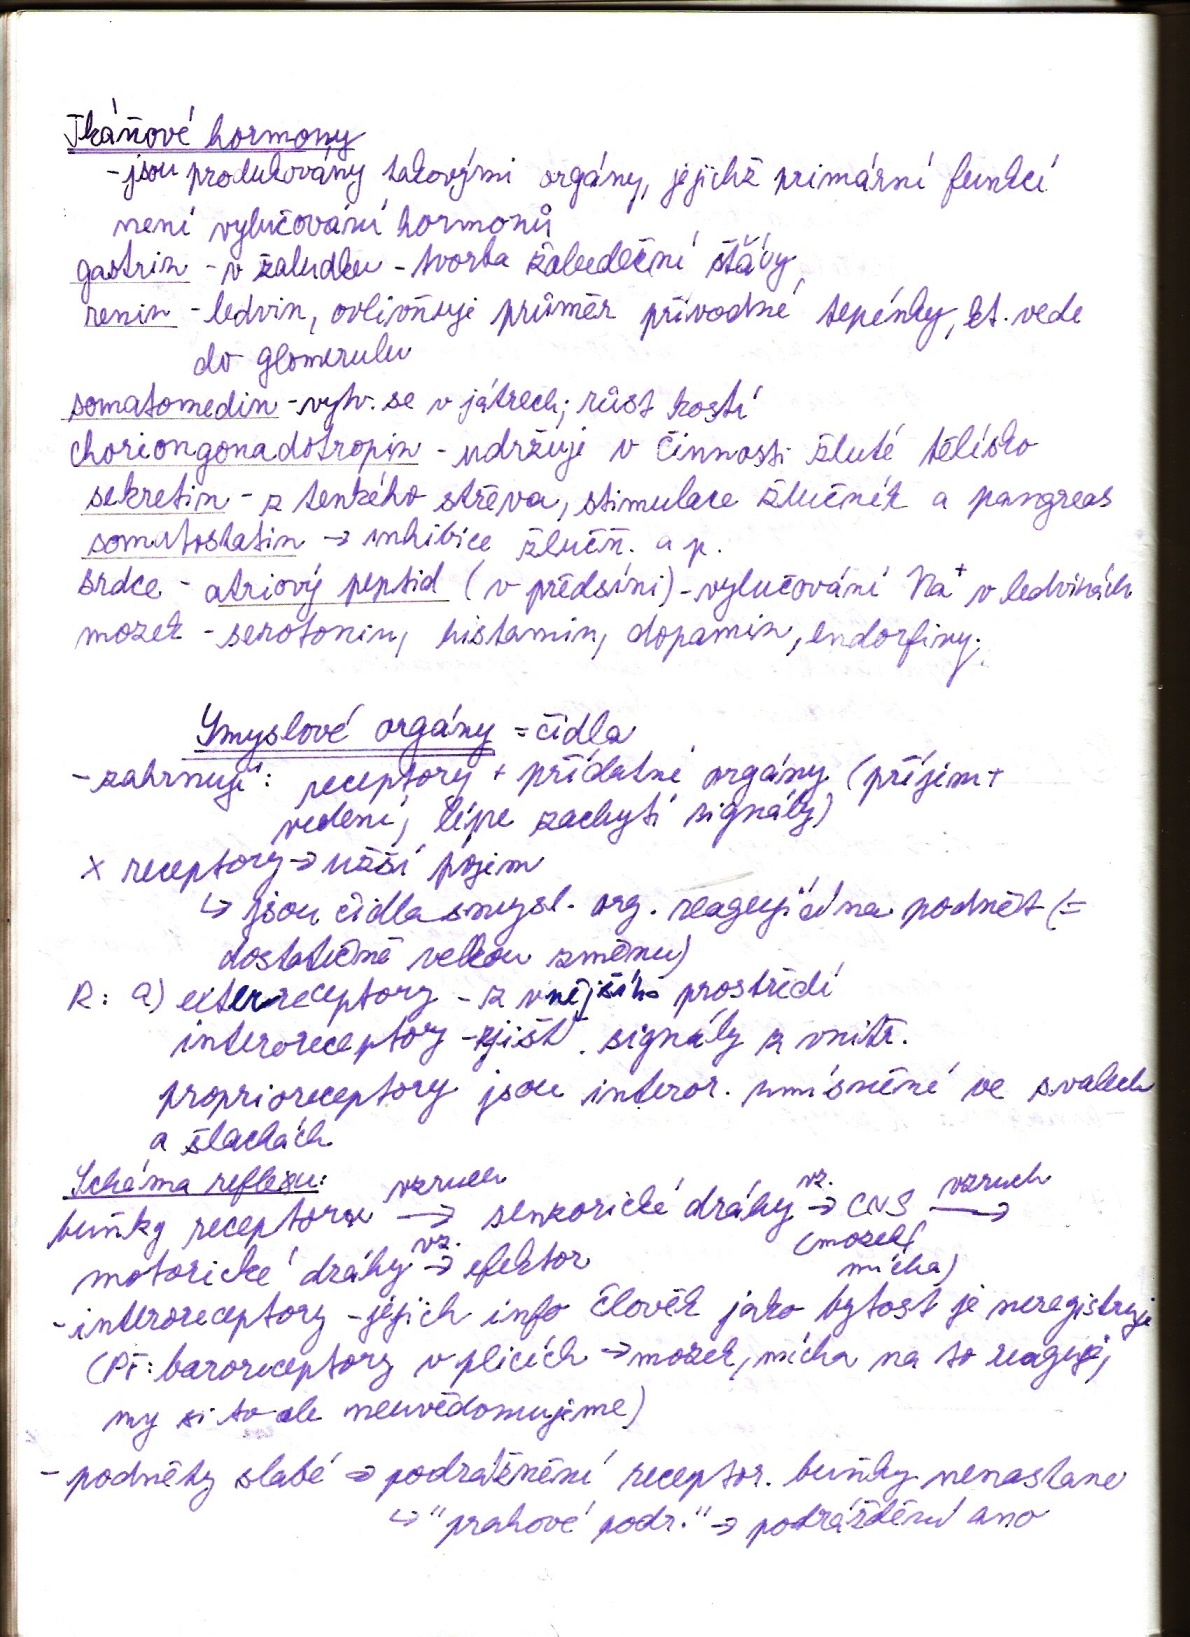 Tkáňové hormony
- jsou produkovány takovými orgány, jejichž primární funkcí
není vylučování hormonů
gastrin - v žaludku - tvorba žaludeční šťávy
renin - ledvin, ovlivňuje průměr přívodné tepénky, kt. vede
do glomerulu
somatomedin - vytv. se v játrech; růst kostí
choriongonadotropin - udržuje v činnosti žluté tělísko
sekretin - z tenkého střeva, stimulace žlučník a pangreas
somatostatin → inhibice žlučn. a p.
srdce - atriový peptid (v předsíni) - vylučování Na⁺ v ledvinách
mozek - serotonin, histamin, dopamin, endorfiny.
Smyslové orgány = čidla
- zahrnují: receptory + přídatné orgány (příjem +
vedení, lépe zachytí signály)
x receptory → užší pojem
↳ jsou čidla smysl. org. reagující na podnět (=
dostatečně velkou změnu)
R: a) exteroreceptory - z vnějšího prostředí
interoreceptory - zjišť. signály z vnitř.
proprioreceptory jsou interor. umísněné ve svalech
a šlachách
Schéma reflexu:
buňky receptoru —vzruch→ senzorické dráhy —vz.→ CNS —vzruch→
(mozek,
mícha)
motorické dráhy —vz.→ efektor
- interoreceptory - jejich info člověk jako bytost je neregistruje
(Př: baroreceptory v plicích → mozek, mícha na to reagují,
my si to ale neuvědomujeme)
- podněty slabé → podráždnění receptor. buňky nenastane
↳ "prahové podr." → podráždění ano